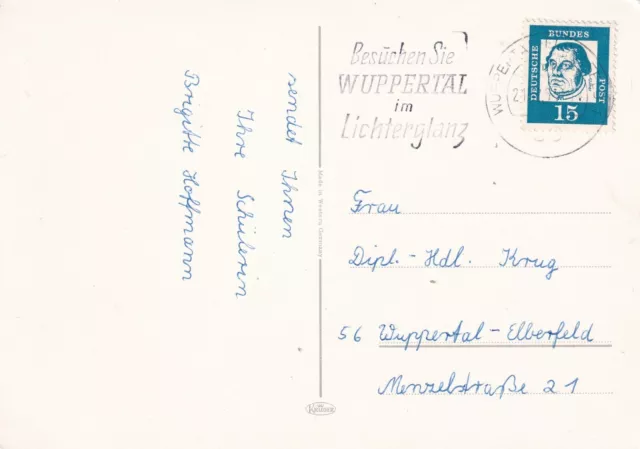 sendet Ihnen
Ihre Schülerin
Brigitte Hoffmann
Made in Western Germany
Krüger
Besuchen Sie
WUPPERTAL
im
Lichterglanz
DEUTSCHE BUNDES POST
15
Frau
Dipl.-Hdl. Krug
56 Wuppertal-Elberfeld
Menzelstraße 21